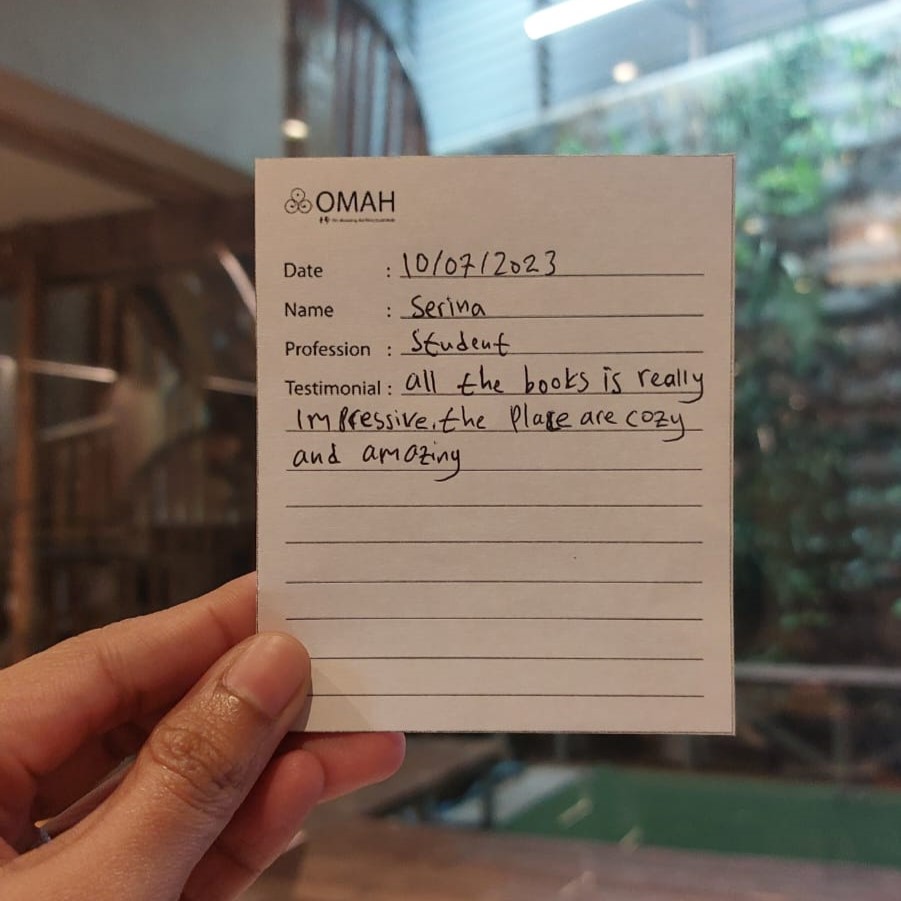 OMAH
Date : 10/07/2023
Name : Serina
Profession : Student
Testimonial : all the books is really
Impressive, the Place are cozy
and amazing